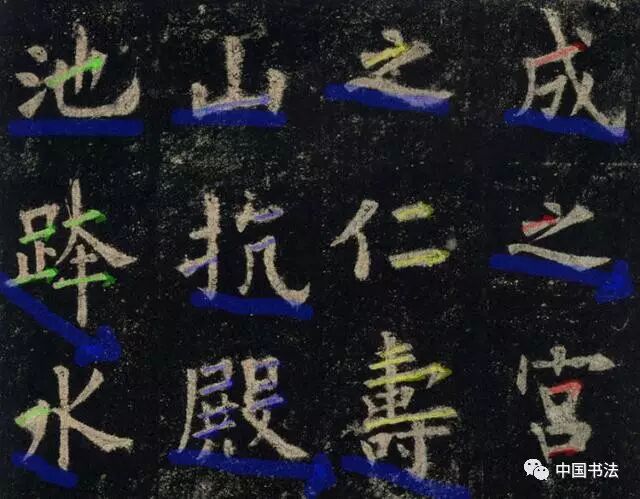 成之宮
之仁壽
山抗殿
池跨水
中国书法